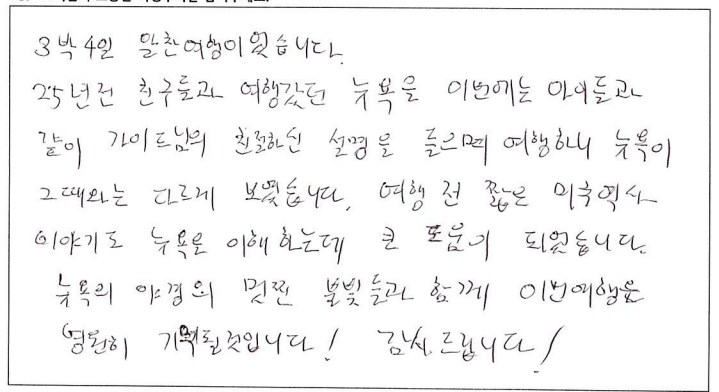 3박4일 알찬여행이 었습니다.
25년전 친구들과 여행갔던 뉴욕을 이번에는 아이들과
같이 가이드님의 친절하신 설명을 들으며 여행하니 뉴욕이
그때와는 다르게 보였습니다. 여행 전 짧은 미국역사
이야기도 뉴욕을 이해 하는데 큰 도움이 되었습니다.
뉴욕의 야경의 멋찐 불빛들과 함께 이번여행을
영원히 기억될것입니다! 감사드립니다!